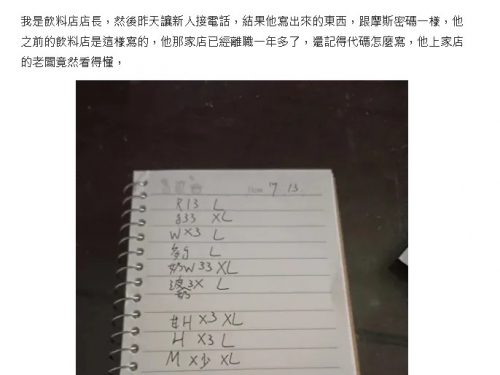 我是飲料店店長，然後昨天讓新人接電話，結果他寫出來的東西，跟摩斯密碼一樣，他
之前的飲料店是這樣寫的，他那家店已經離職一年多了，還記得代碼怎麼寫，他上家店
的老闆竟然看得懂，
7 13
R13 L
333 XL
W×3 L
多 L
奶W33 XL
波3X L
奶
甘H ×3 XL
H ×3 L
M ×少 XL